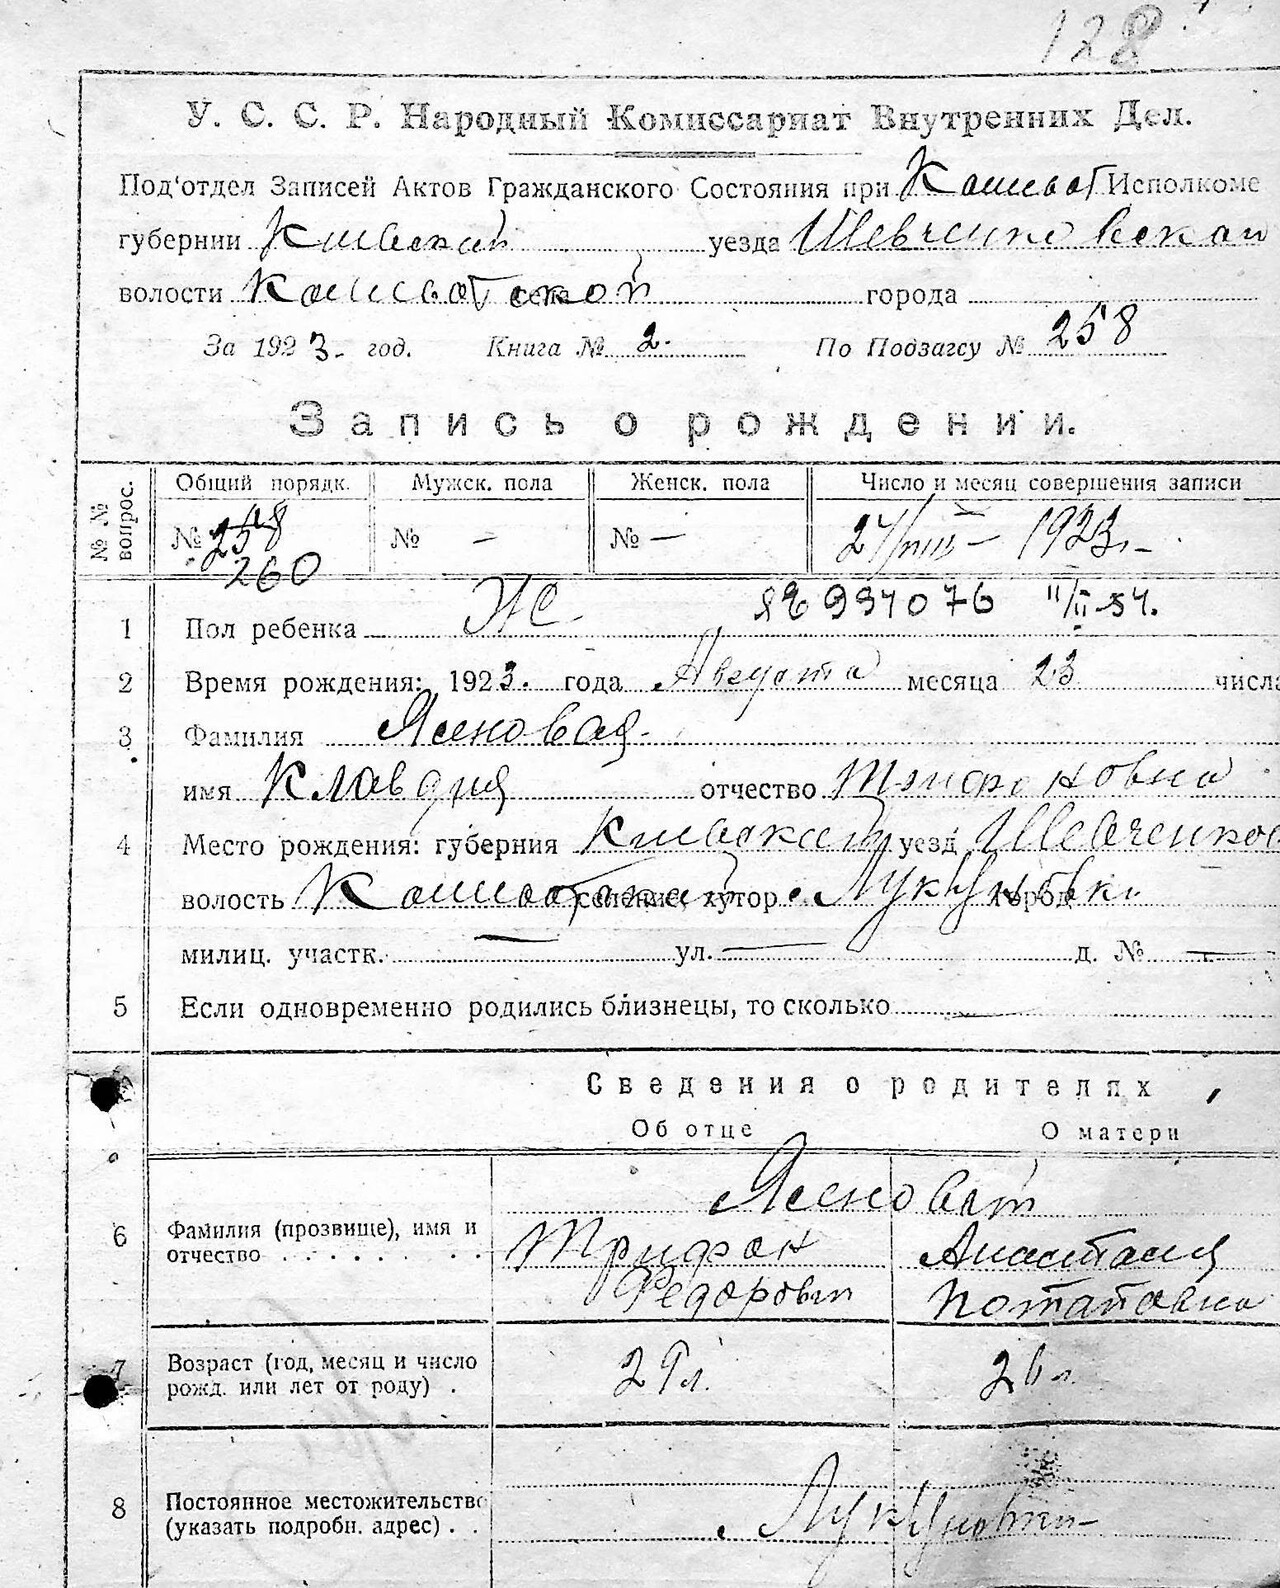 128
У. С. С. Р. Народный Комиссариат Внутренних Дел.
Под'отдел Записей Актов Гражданского Состояния при Кошеват Исполкоме
губернии Киевской уезда Шевченковской
волости Кошеватской села города
За 1923 - год. Книга № 2. По Подзагсу № 258
Запись о рождении.
№ № вопрос. Общий порядк. Мужск. пола Женск. пола Число и месяц совершения записи
№ 258 № — № — 27/VIII — 1923 г.
260
1 Пол ребенка Ж 937076 11/II-54.
2 Время рождения: 1923. года Августа месяца 23 числа
3 Фамилия Ясеновая
имя Клавдия отчество Трифоновна
4 Место рождения: губерния Киевской уезд Шевченков
волость Кошеватской селение, хутор город
милиц. участк. — ул. — д. № —
5 Если одновременно родились близнецы, то сколько —
Сведения о родителях
Об отце О матери
Ясеновы
6 Фамилия (прозвище), имя и Трифон Анастасия
отчество . . . . . . . Федоров Потаповна
7 Возраст (год, месяц и число 29 л. 26 л.
рожд. или лет от роду) .
8 Постоянное местожительство
(указать подробн. адрес) . .